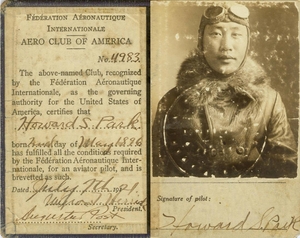 FÉDÉRATION AÉRONAUTIQUE
INTERNATIONALE
AERO CLUB OF AMERICA
No. 4983
The above-named Club, recognized
by the Fédération Aéronautique
Internationale, as the governing
authority for the United States of
America, certifies that
Howard S. Park
born day of
has fulfilled all the conditions required
by the Fédération Aéronautique Inter-
nationale, for an aviator pilot, and is
brevetted as such.
Dated
President.
Augustus Post
Secretary.
Signature of pilot:
Howard S. Park